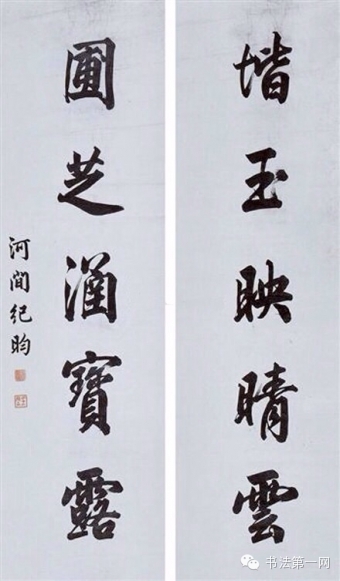 堦玉映晴雲
圃芝涵寶露
河間紀昀
书法第一网